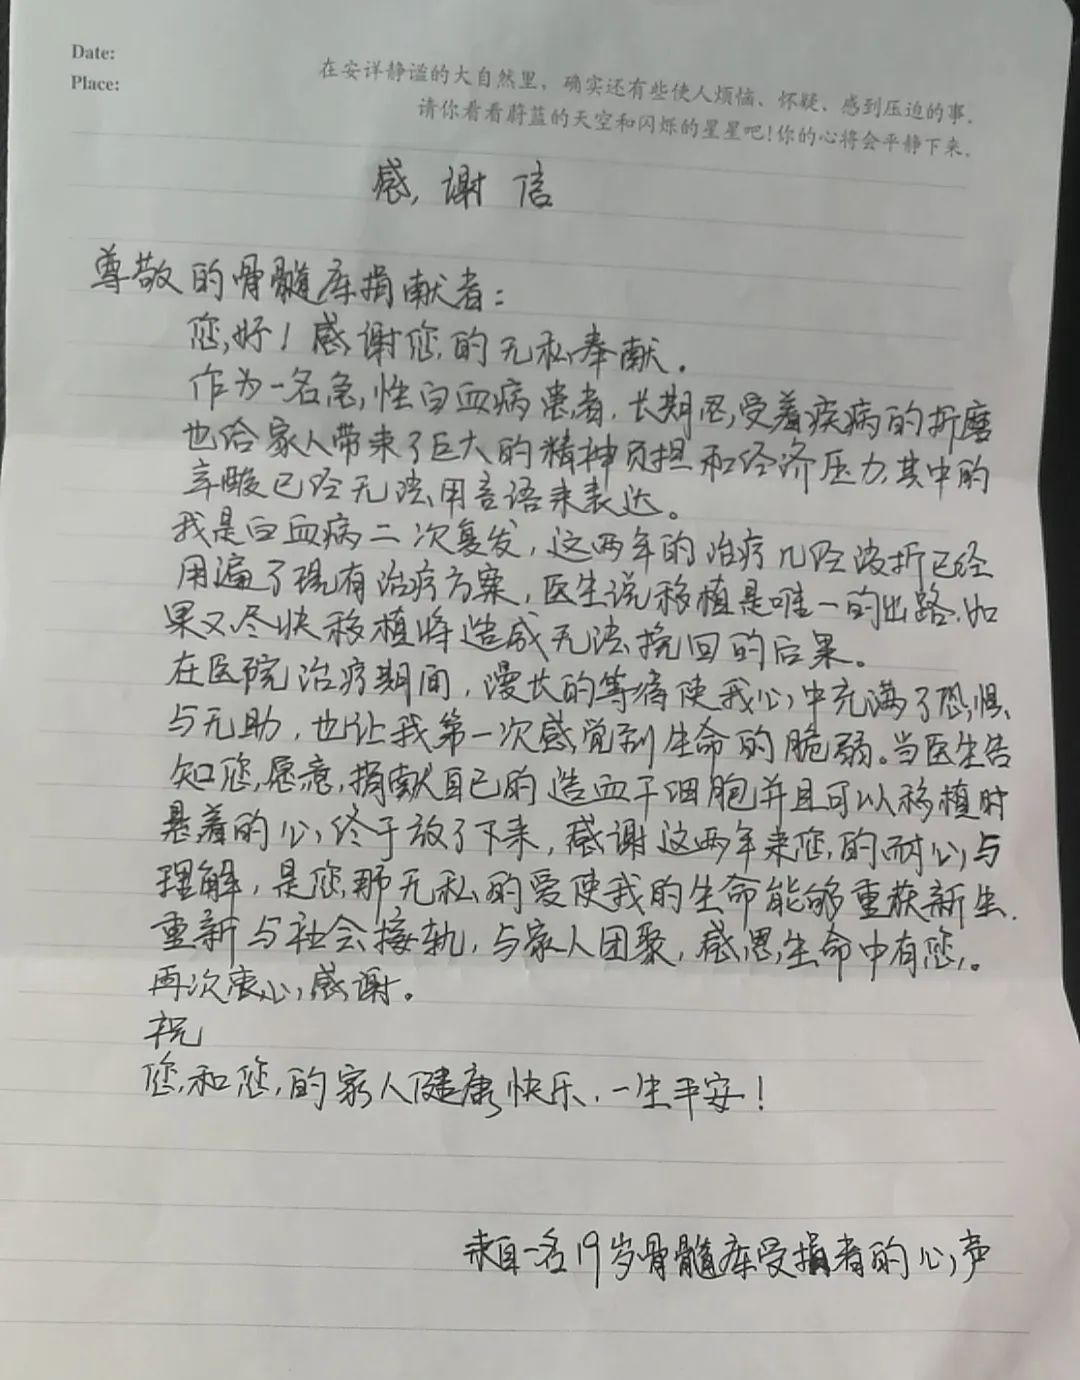 Date:
Place:
在安详静谧的大自然里，确实还有些使人烦恼、怀疑、感到压迫的事.
请你看看蔚蓝的天空和闪烁的星星吧!你的心将会平静下来.
感谢信
尊敬的骨髓库捐献者：
您好！感谢您的无私奉献.
作为一名急性白血病患者.长期忍受着疾病的折磨
也给家人带来了巨大的精神负担和经济压力,其中的
辛酸已经无法用言语来表达。
我是白血病二次复发，这两年的治疗几经波折已经
用遍了现有治疗方案，医生说移植是唯一的出路.如
果又尽快移植将造成无法挽回的后果。
在医院治疗期间，漫长的等待使我心中充满了恐惧
与无助，也让我第一次感觉到生命的脆弱。当医生告
知您愿意捐献自已的造血干细胞并且可以移植时
悬着的心终于放了下来，感谢这两年来您的耐心与
理解，是您那无私的爱使我的生命能够重获新生.
重新与社会接轨，与家人团聚，感恩生命中有您。
再次衷心感谢。
祝
您和您的家人健康快乐.一生平安！
来自一名19岁骨髓库受捐者的心声